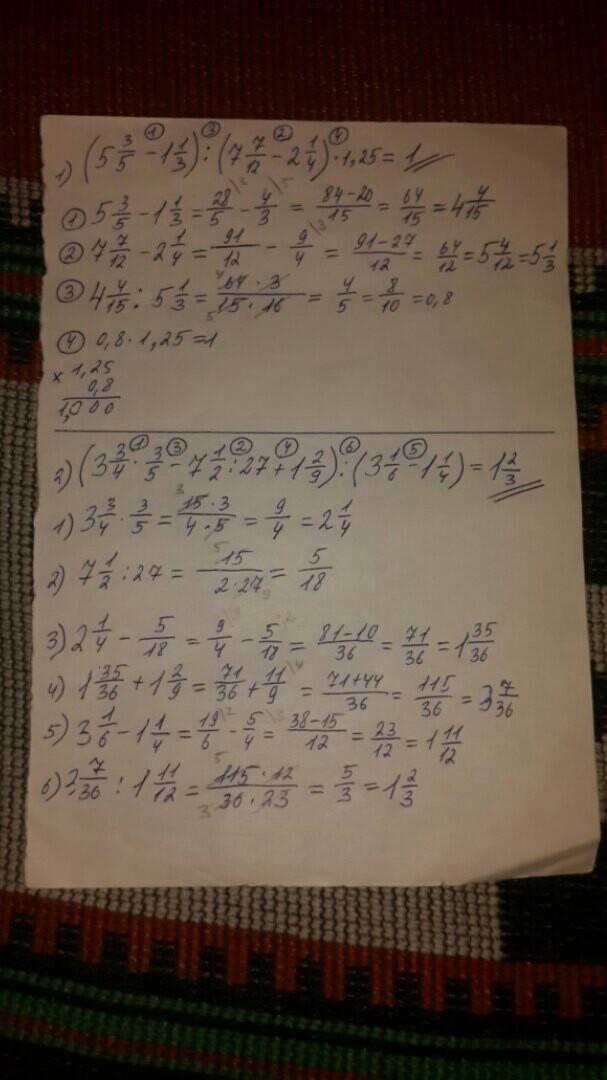 1) (5 3/5 - 1 1/3) : (7 7/12 - 2 1/4) · 1,25 = 1
① ③ ② ④
① 5 3/5 - 1 1/3 = 28/5 - 4/3 = 84-20/15 = 64/15 = 4 4/15
② 7 7/12 - 2 1/4 = 91/12 - 9/4 = 91-27/12 = 64/12 = 5 4/12 = 5 1/3
③ 4 4/15 : 5 1/3 = 64·3/15·16 = 4/5 = 8/10 = 0,8
④ 0,8 · 1,25 = 1
× 1,25
0,8
1,000
2) (3 3/4 · 3/5 - 7 1/2 : 27 + 1 2/9) : (3 1/6 - 1 1/4) = 1 2/3
① ③ ② ④ ⑥ ⑤
1) 3 3/4 · 3/5 = 15·3/4·5 = 9/4 = 2 1/4
2) 7 1/2 : 27 = 15/2·27 = 5/18
3) 2 1/4 - 5/18 = 9/4 - 5/18 = 81-10/36 = 71/36 = 1 35/36
4) 1 35/36 + 1 2/9 = 71/36 + 11/9 = 71+44/36 = 115/36 = 3 7/36
5) 3 1/6 - 1 1/4 = 19/6 - 5/4 = 38-15/12 = 23/12 = 1 11/12
6) 3 7/36 : 1 11/12 = 115·12/36·23 = 5/3 = 1 2/3